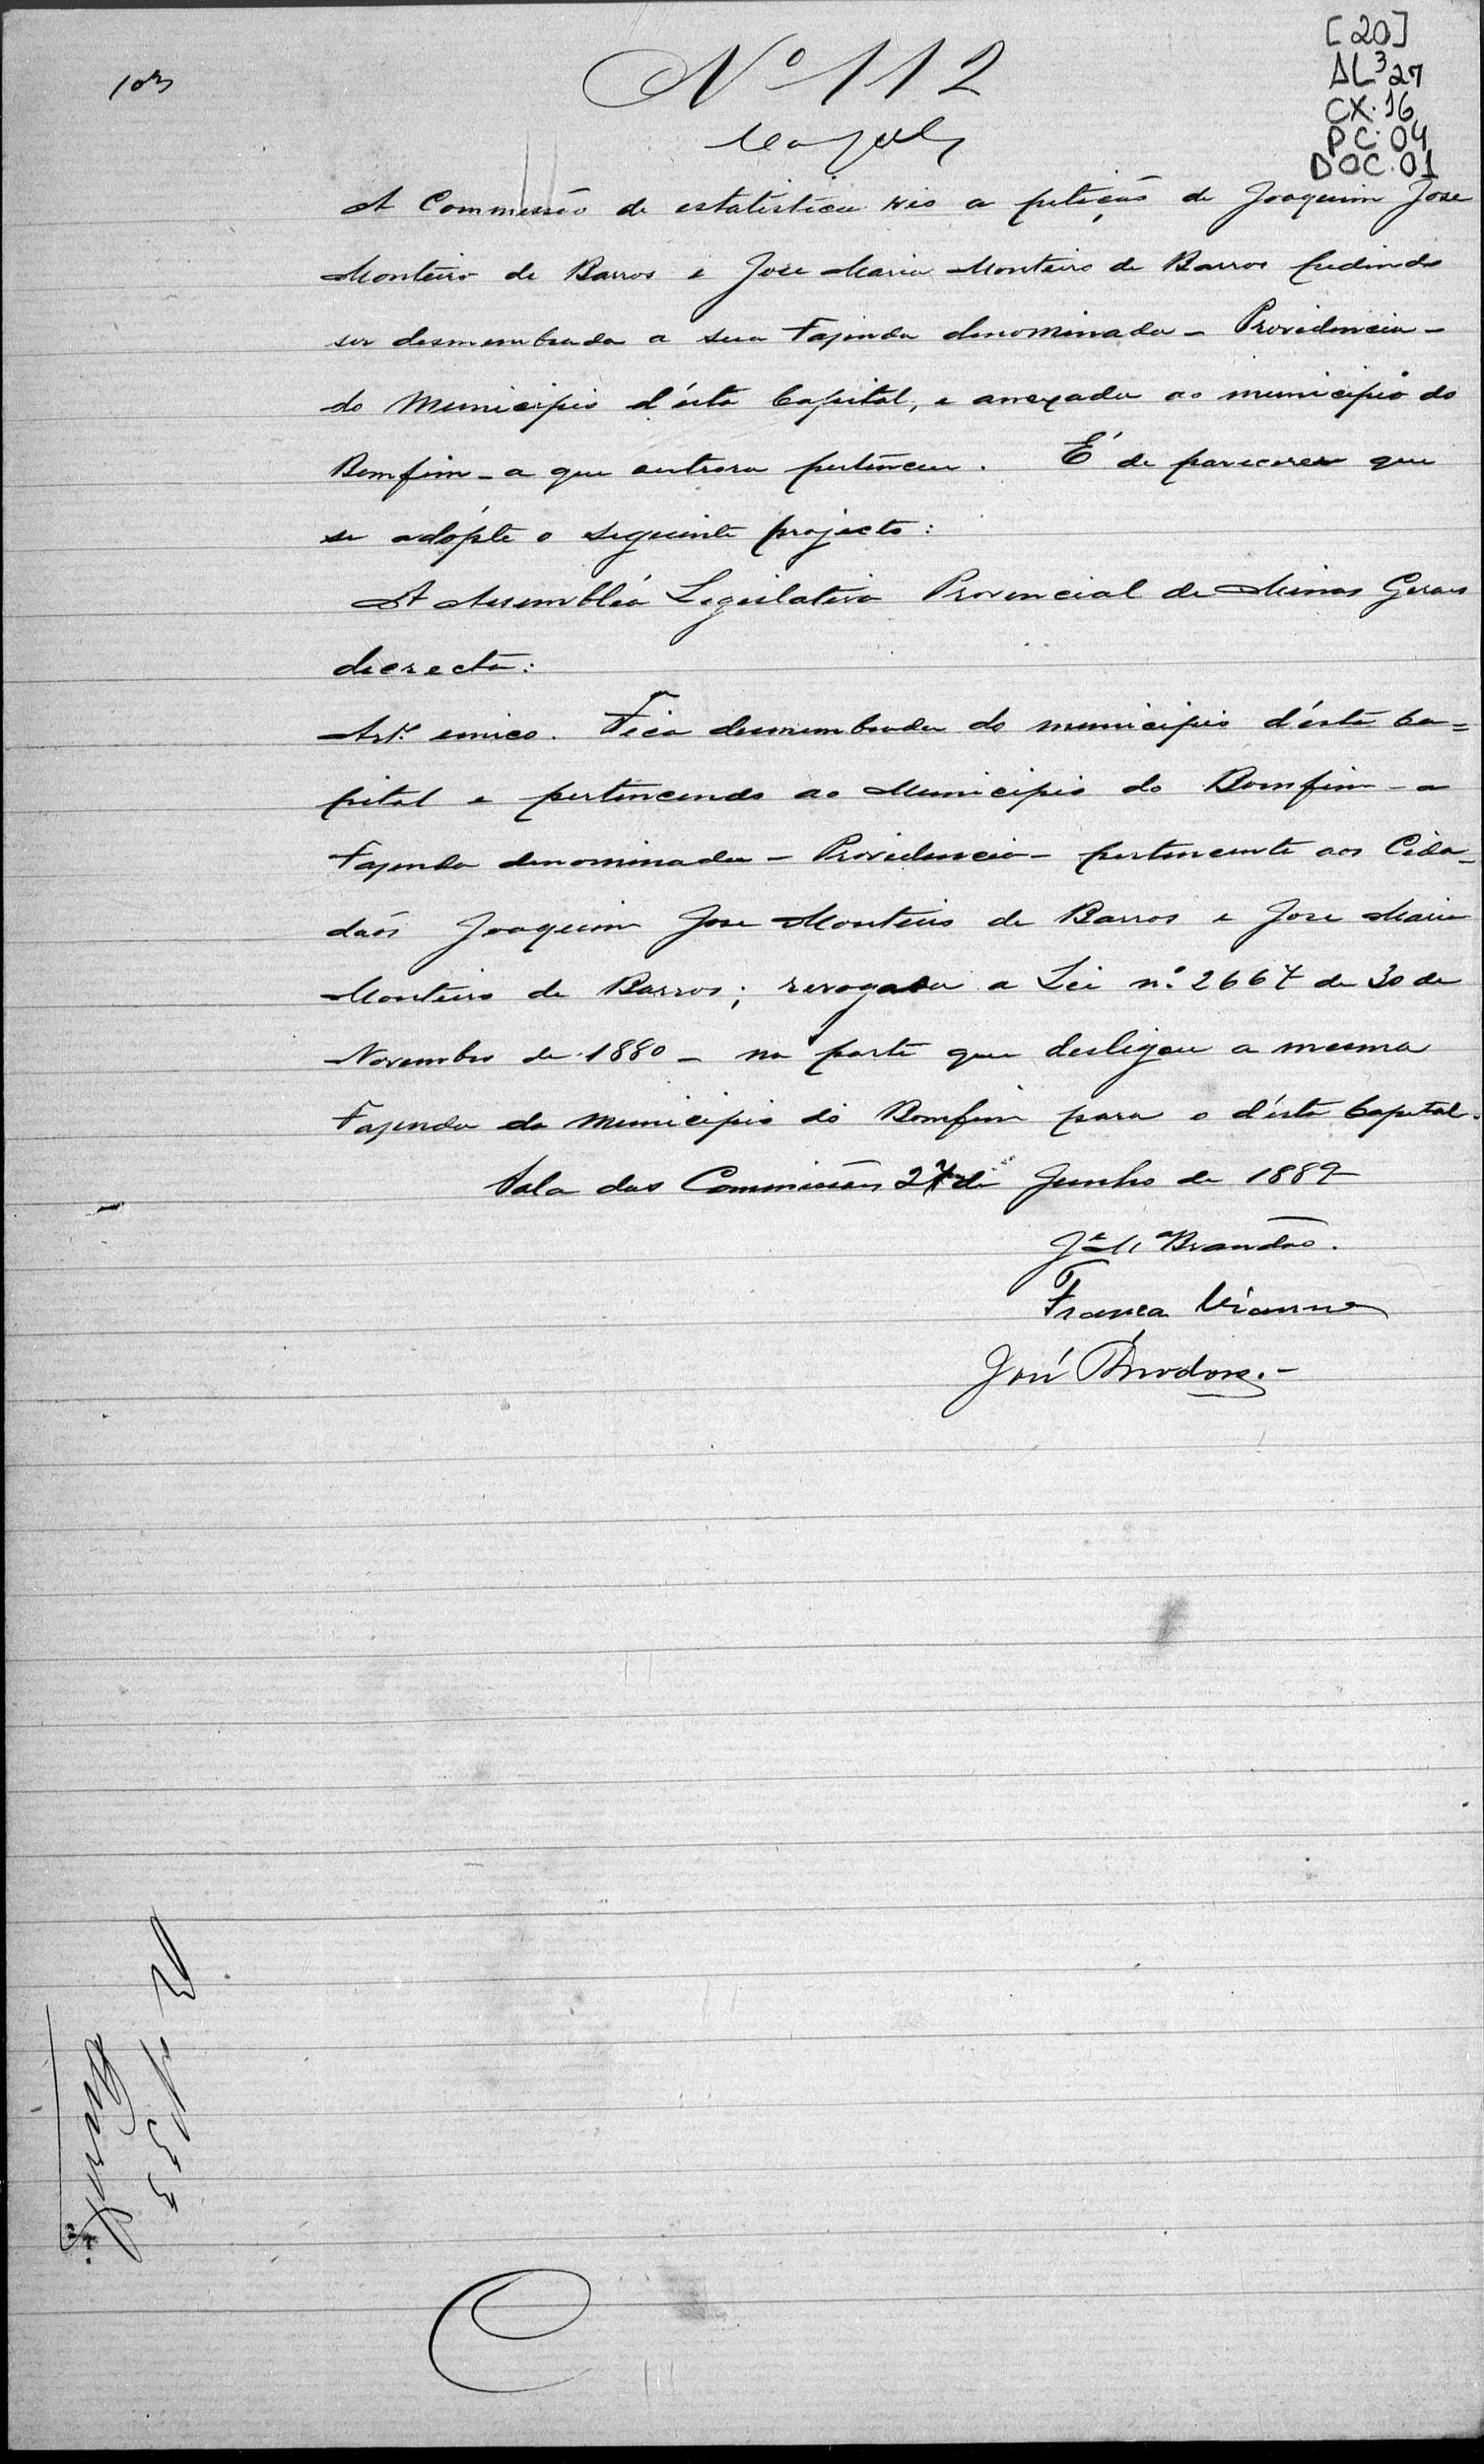 [20]
AL³27
CX. 16
PC. 04
DOC. 01
103
Nº 112
A Commissão de estatistica vio a petição de Joaquim Jose
Monteiro de Barros e Jose Maria Monteiro de Barros pedindo
ser desmembrada a sua Fazenda denominada - Providencia -
do Municipio d'ésta Capital, e anexada ao municipio do
Bomfim - a que outrora pertenceu. É de parecerer que
se adópte o seguinte projecto:
A Assembléa Legislativa Provincial de Minas Geraes
decrecta:
Artº unico. Fica desmembrada do municipio d'ésta Ca=
pital e pertencendo ao Municipio do Bomfim - a
Fazenda denominada - Providencia - pertencente aos Cida-
dãos Joaquim Jose Monteiro de Barros e Jose Maria
Monteiro de Barros; revogada a Lei nº 2667 de 30 de
Novembro de 1880 - na parte que desligou a mesma
Fazenda do Municipio do Bomfim para o d'ésta Capital.
Sala das Commissões 27 de Junho de 1887
Brandão.
França Vianna
José